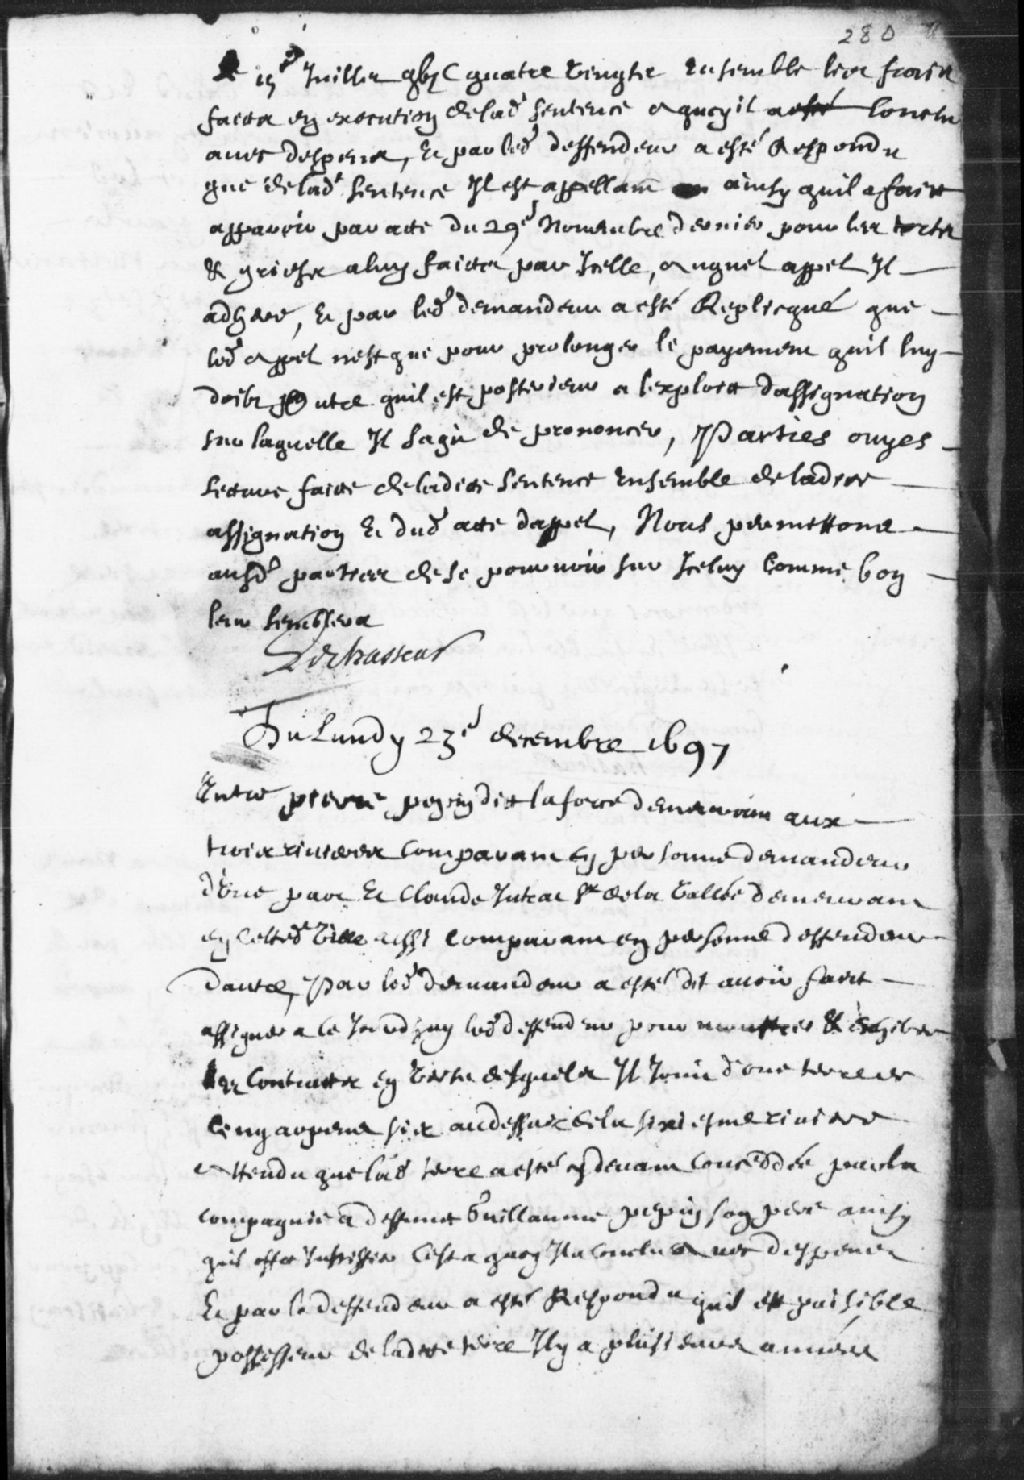 280
Juillet gbjC quatre vingts Ensemble les frais
faictz en execution de lad^e Sentence a quoy il conclu
avec despens, Et par led^t deffendeur a esté Respondu
que de lad^e Sentence Il est appellant ainsy quil a faict
apparoir par acte du 29^e Novembre dernier pour les tortz
& griefz a luy faictz par Icelle, auquel appel Il
adhere, Et par led^t demandeur a esté Replicqué que
led^t appel nest que pour prolonger le payement quil luy
doibt outre quil est posterieur a lexploit dassignation
sur laquelle Il sagit de prononcer, Parties ouyes
lecture faite de ladite Sentence Ensemble de ladite
assignation Et dud^t acte dappel, Nous permettons
ausd^t parties de se pourvoir sur Iceluy Comme bon
leur semblera
Du Lundy 23^e decembre 1697
Entre pierre pepin dit laforce demeurant aux
trois rivieres Comparant en personne demandeur
d'une part Et Claude Jutras S^r de la Vallée demeurant
en cette d^e Ville aussi Comparant en personne deffendeur
dautre, Par led^t demandeur a esté dit avoir faict
assigner a ce Jourdhuy led^t deffendeur pour monstrer & exhiber
les Contractz en Vertu desquels Il Jouit d'une terre de
cinq arpens six au dessus de la sixiesme riviere
attendu que lad^e terre a esté cy devant Conceddée par la
compagnie a deffunct Guillaume pepin son pere ainsy
quil offre Justiffier Cest a quoy Il a conclu avec despens
Et par le deffendeur a esté Respondu quil est paisible
possesseur de ladite terre Il y a plusieurs années